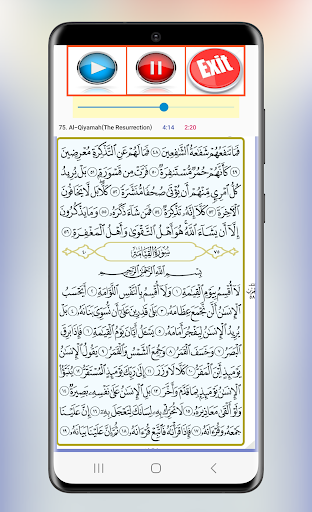 Exit
75. Al-Qiyamah(The Resurrection) 4:14 2:20
فَمَا تَنفَعُهُمْ شَفَٰعَةُ ٱلشَّٰفِعِينَ ٤٨ فَمَا لَهُمْ عَنِ ٱلتَّذْكِرَةِ مُعْرِضِينَ
٤٩ كَأَنَّهُمْ حُمُرٌ مُّسْتَنفِرَةٌ ٥٠ فَرَّتْ مِن قَسْوَرَةٍ ٥١ بَلْ يُرِيدُ
كُلُّ ٱمْرِئٍ مِّنْهُمْ أَن يُؤْتَىٰ صُحُفًا مُّنَشَّرَةً ٥٢ كَلَّا بَل لَّا يَخَافُونَ
ٱلْأٓخِرَةَ ٥٣ كَلَّآ إِنَّهُۥ تَذْكِرَةٌ ٥٤ فَمَن شَآءَ ذَكَرَهُۥ ٥٥ وَمَا يَذْكُرُونَ
إِلَّآ أَن يَشَآءَ ٱللَّهُ هُوَ أَهْلُ ٱلتَّقْوَىٰ وَأَهْلُ ٱلْمَغْفِرَةِ ٥٦
٧٥ سُورَةُ القِيَامَةِ ٤٠
بِسْمِ ٱللَّهِ ٱلرَّحْمَٰنِ ٱلرَّحِيمِ
لَآ أُقْسِمُ بِيَوْمِ ٱلْقِيَٰمَةِ ١ وَلَآ أُقْسِمُ بِٱلنَّفْسِ ٱللَّوَّامَةِ ٢ أَيَحْسَبُ
ٱلْإِنسَٰنُ أَلَّن نَّجْمَعَ عِظَامَهُۥ ٣ بَلَىٰ قَٰدِرِينَ عَلَىٰٓ أَن نُّسَوِّىَ بَنَانَهُۥ ٤ بَلْ
يُرِيدُ ٱلْإِنسَٰنُ لِيَفْجُرَ أَمَامَهُۥ ٥ يَسْـَٔلُ أَيَّانَ يَوْمُ ٱلْقِيَٰمَةِ ٦ فَإِذَا بَرِقَ
ٱلْبَصَرُ ٧ وَخَسَفَ ٱلْقَمَرُ ٨ وَجُمِعَ ٱلشَّمْسُ وَٱلْقَمَرُ ٩ يَقُولُ
ٱلْإِنسَٰنُ يَوْمَئِذٍ أَيْنَ ٱلْمَفَرُّ ١٠ كَلَّا لَا وَزَرَ ١١ إِلَىٰ رَبِّكَ يَوْمَئِذٍ ٱلْمُسْتَقَرُّ ١٢ يُنَبَّؤُا۟
ٱلْإِنسَٰنُ يَوْمَئِذٍۭ بِمَا قَدَّمَ وَأَخَّرَ ١٣ بَلِ ٱلْإِنسَٰنُ عَلَىٰ نَفْسِهِۦ بَصِيرَةٌ ١٤
وَلَوْ أَلْقَىٰ مَعَاذِيرَهُۥ ١٥ لَا تُحَرِّكْ بِهِۦ لِسَانَكَ لِتَعْجَلَ بِهِۦٓ ١٦ إِنَّ عَلَيْنَا
جَمْعَهُۥ وَقُرْءَانَهُۥ ١٧ فَإِذَا قَرَأْنَٰهُ فَٱتَّبِعْ قُرْءَانَهُۥ ١٨ ثُمَّ إِنَّ عَلَيْنَا بَيَانَهُۥ ١٩